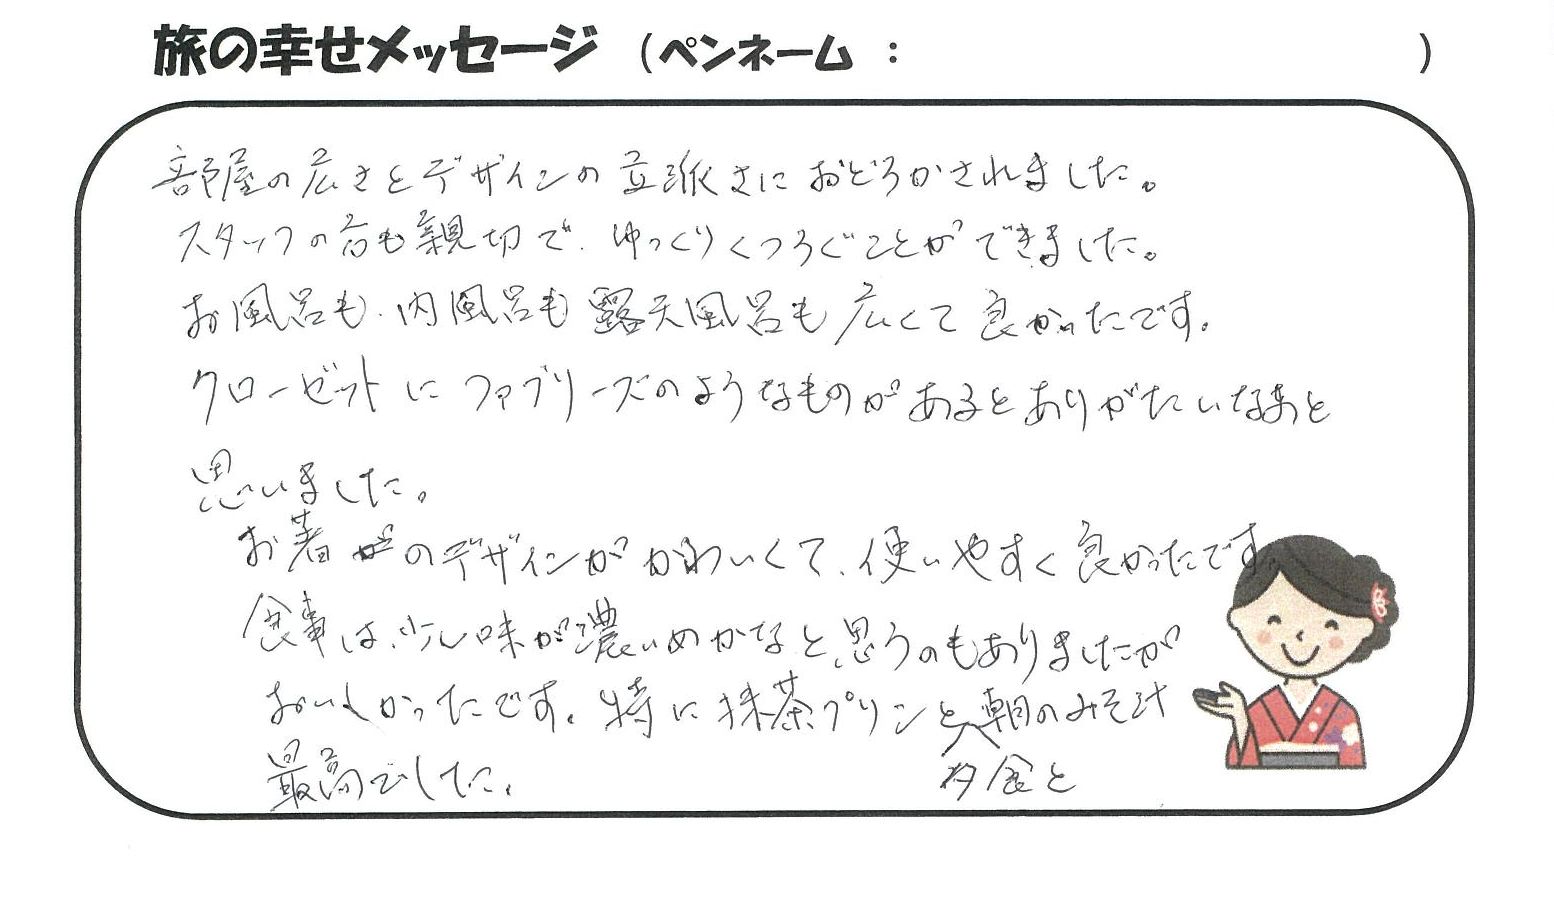 旅の幸せメッセージ （ペンネーム ： ）
部屋の広さとデザインの立派さにおどろかされました。
スタッフの方も親切で、ゆっくりくつろぐことができました。
お風呂も、内風呂も露天風呂も広くて良かったです。
クローゼットにファブリーズのようなものがあるとありがたいなあと
思いました。
お着がのデザインがかわいくて、使いやすく良かったです。
食事は、少し味が濃いめかなと思うのもありましたが
おいしかったです。特に抹茶プリンと朝のみそ汁
夕食と
最高でした。